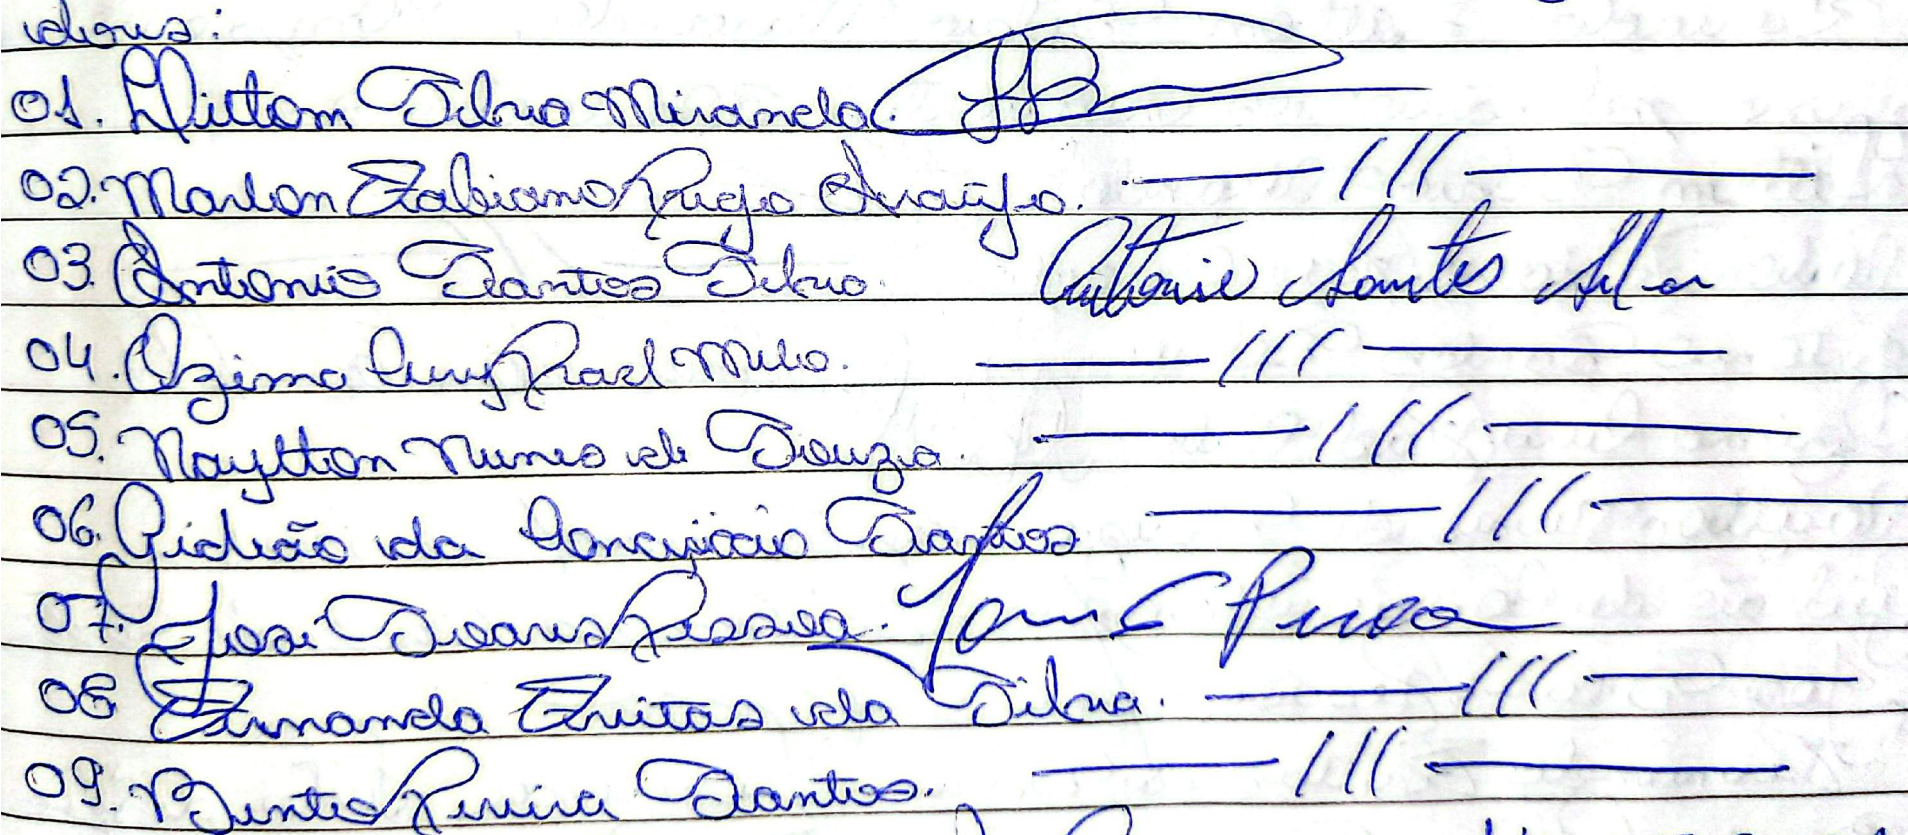 01. Wiltom Silva Miranda.
02. Marlon Fabiano Rego Araújo. — /// —
03. Antonio Santos Silva. Antonio Santos Silva
04. Ozima Cruz Rael Melo. — /// —
05. Naytton Nunes de Souza. — /// —
06. Gideão da Conceição Santos — /// —
07. José Soares Pessoa.
08 Fernanda Freitas da Silva. — /// —
09. Bento Pereira Santos. — /// —